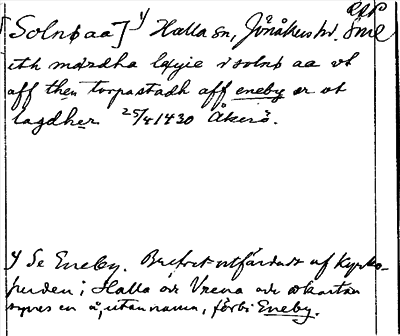 app
[Solnþaa] y Halla sn, Jönåkers hd. Sml
eth mærdha læyie i solnþ aa vt
aff then torpastadh aff eneby ær vt
lagdher 25/4 1430 Åkerö.
y Se Eneby. Brefvet utfärdadt af Kyrko-
herden i Halla och Vrena och å kartan
synes en å, utan namn, förbi Eneby.